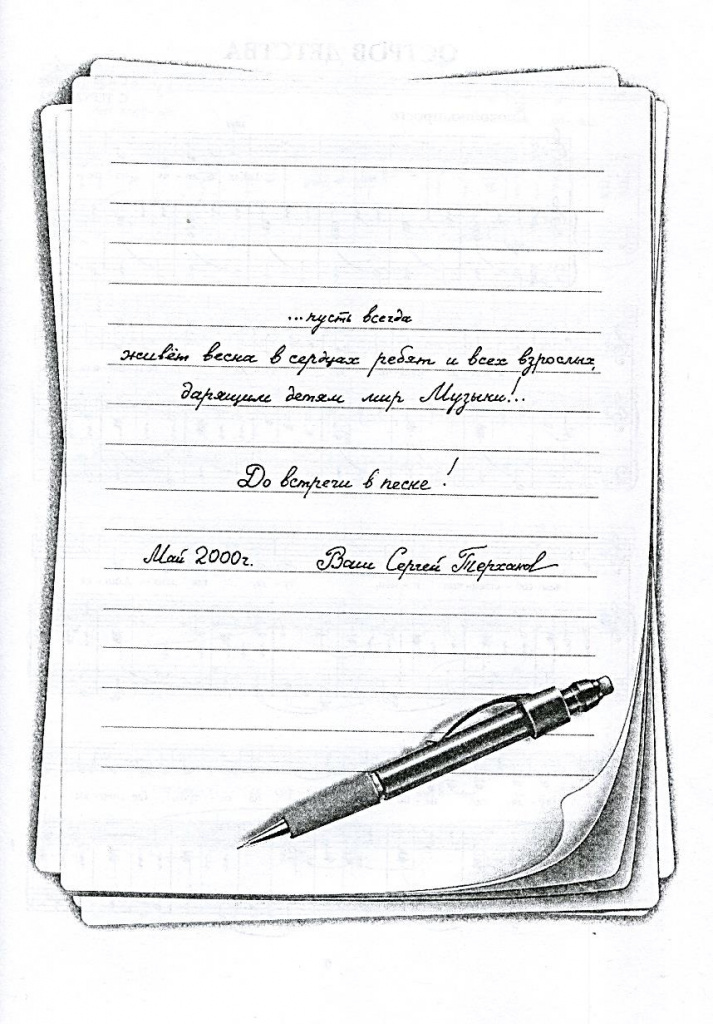 ОСТРОВ ДЕТСТВА
...пусть всегда
живёт весна в сердцах ребят и всех взрослых,
дарящим детям мир Музыки!..
До встречи в песне!
Май 2000г. Ваш Сергей Терханов